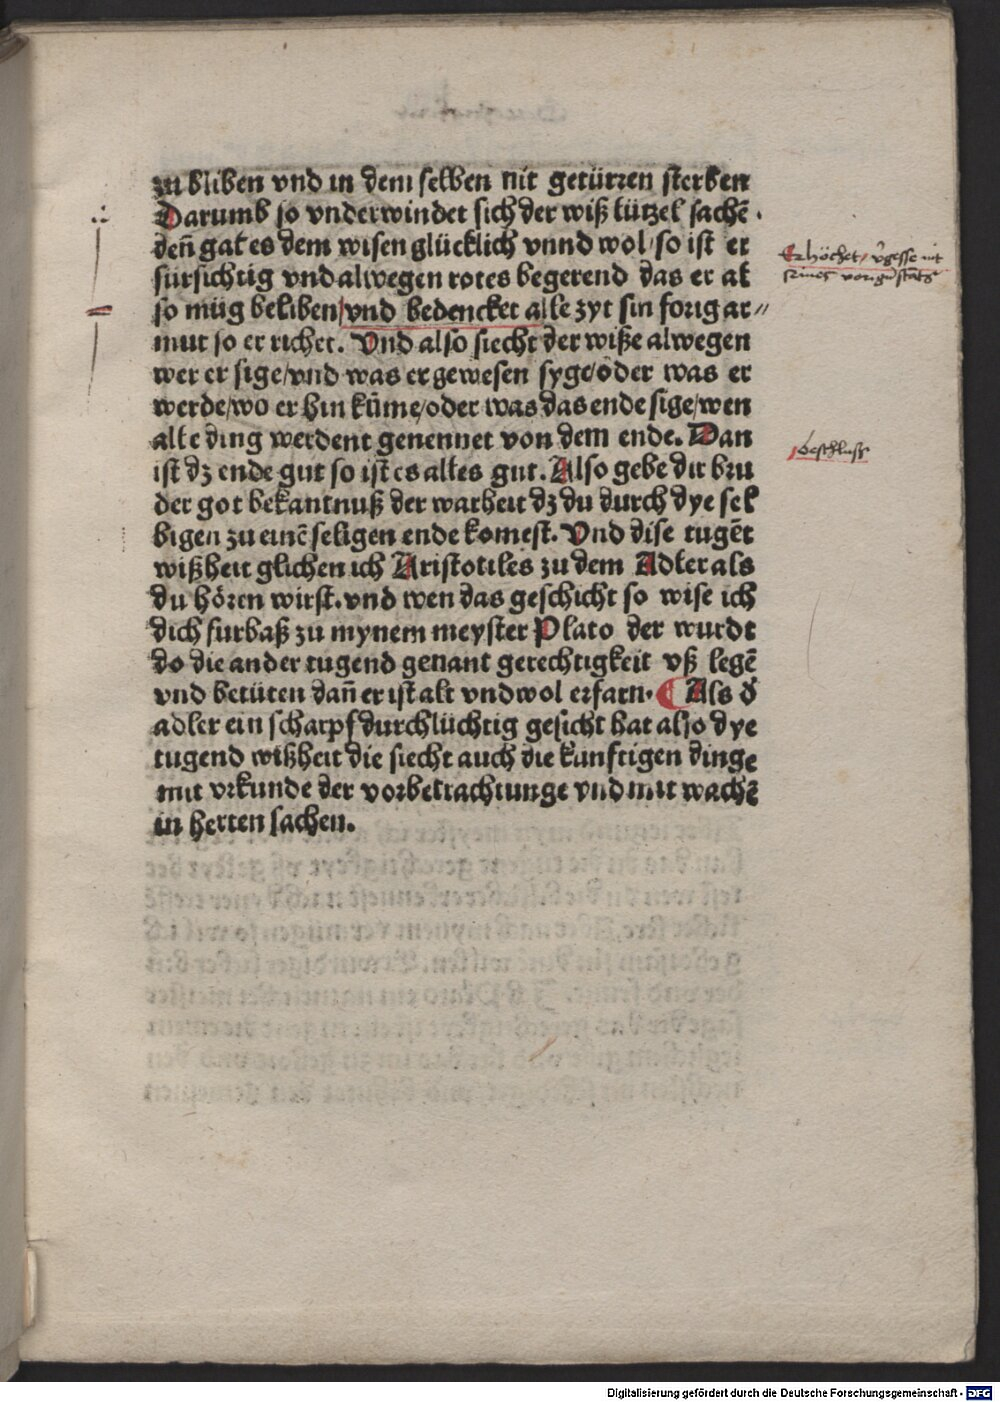 zu bliben vnd in dem selben nit getürren sterben
Darumb so vnderwindet sich der wiß lützel sachē.
deñ gat es dem wisen glücklich vnnd wol/so ist er
fürsichtig vnd alwegen rotes begerend das er al
so müg beliben/vnd bedencket alle zyt sin forig ar⸗
mut so er richet. Vnd also siecht der wiße alwegen
wer er sige/vnd was er gewesen syge/oder was er
werde/wo er hin kūme/oder was das ende sige/wen
alle ding werdent genennet von dem ende. Dan
ist dz ende gut so ist es alles gut. Also gebe dir bru
der got bekantnuß der warheit dz du durch dye sel
bigen zu einē seligen ende komest. Vnd dise tugēt
wißheit glichen ich Aristotiles zu dem Adler als
du hören wirst. vnd wen das geschicht so wise ich
dich furbaß zu mynem meyster Plato der wurdt
do die ander tugend genant gerechtigkeit vß legē
vnd betüten dañ er ist alt vnd wol erfarn. Als d̓
adler ein scharpf durchlüchtig gesicht hat also dye
tugend wißheit die siecht auch die kunftigen dinge
mit vrkunde der vorbetrachtunge vnd mit wachē
in herten sachen.
Erhöchet, v̄gesse nit
seines vorigē stats
beschluss
Digitalisierung gefördert durch die Deutsche Forschungsgemeinschaft - DFG